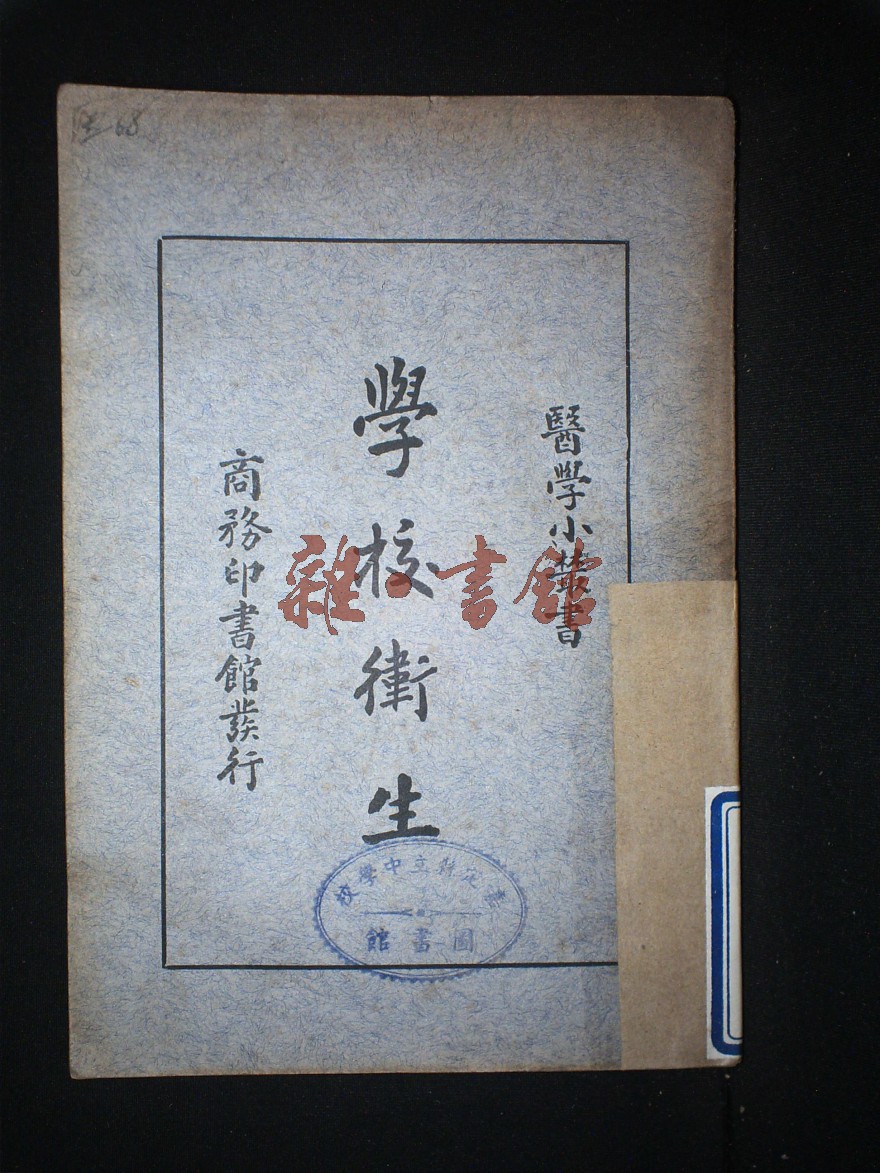 醫學小叢書
學校衛生
商務印書館發行
立中學校
圖書館
雜·書館
68